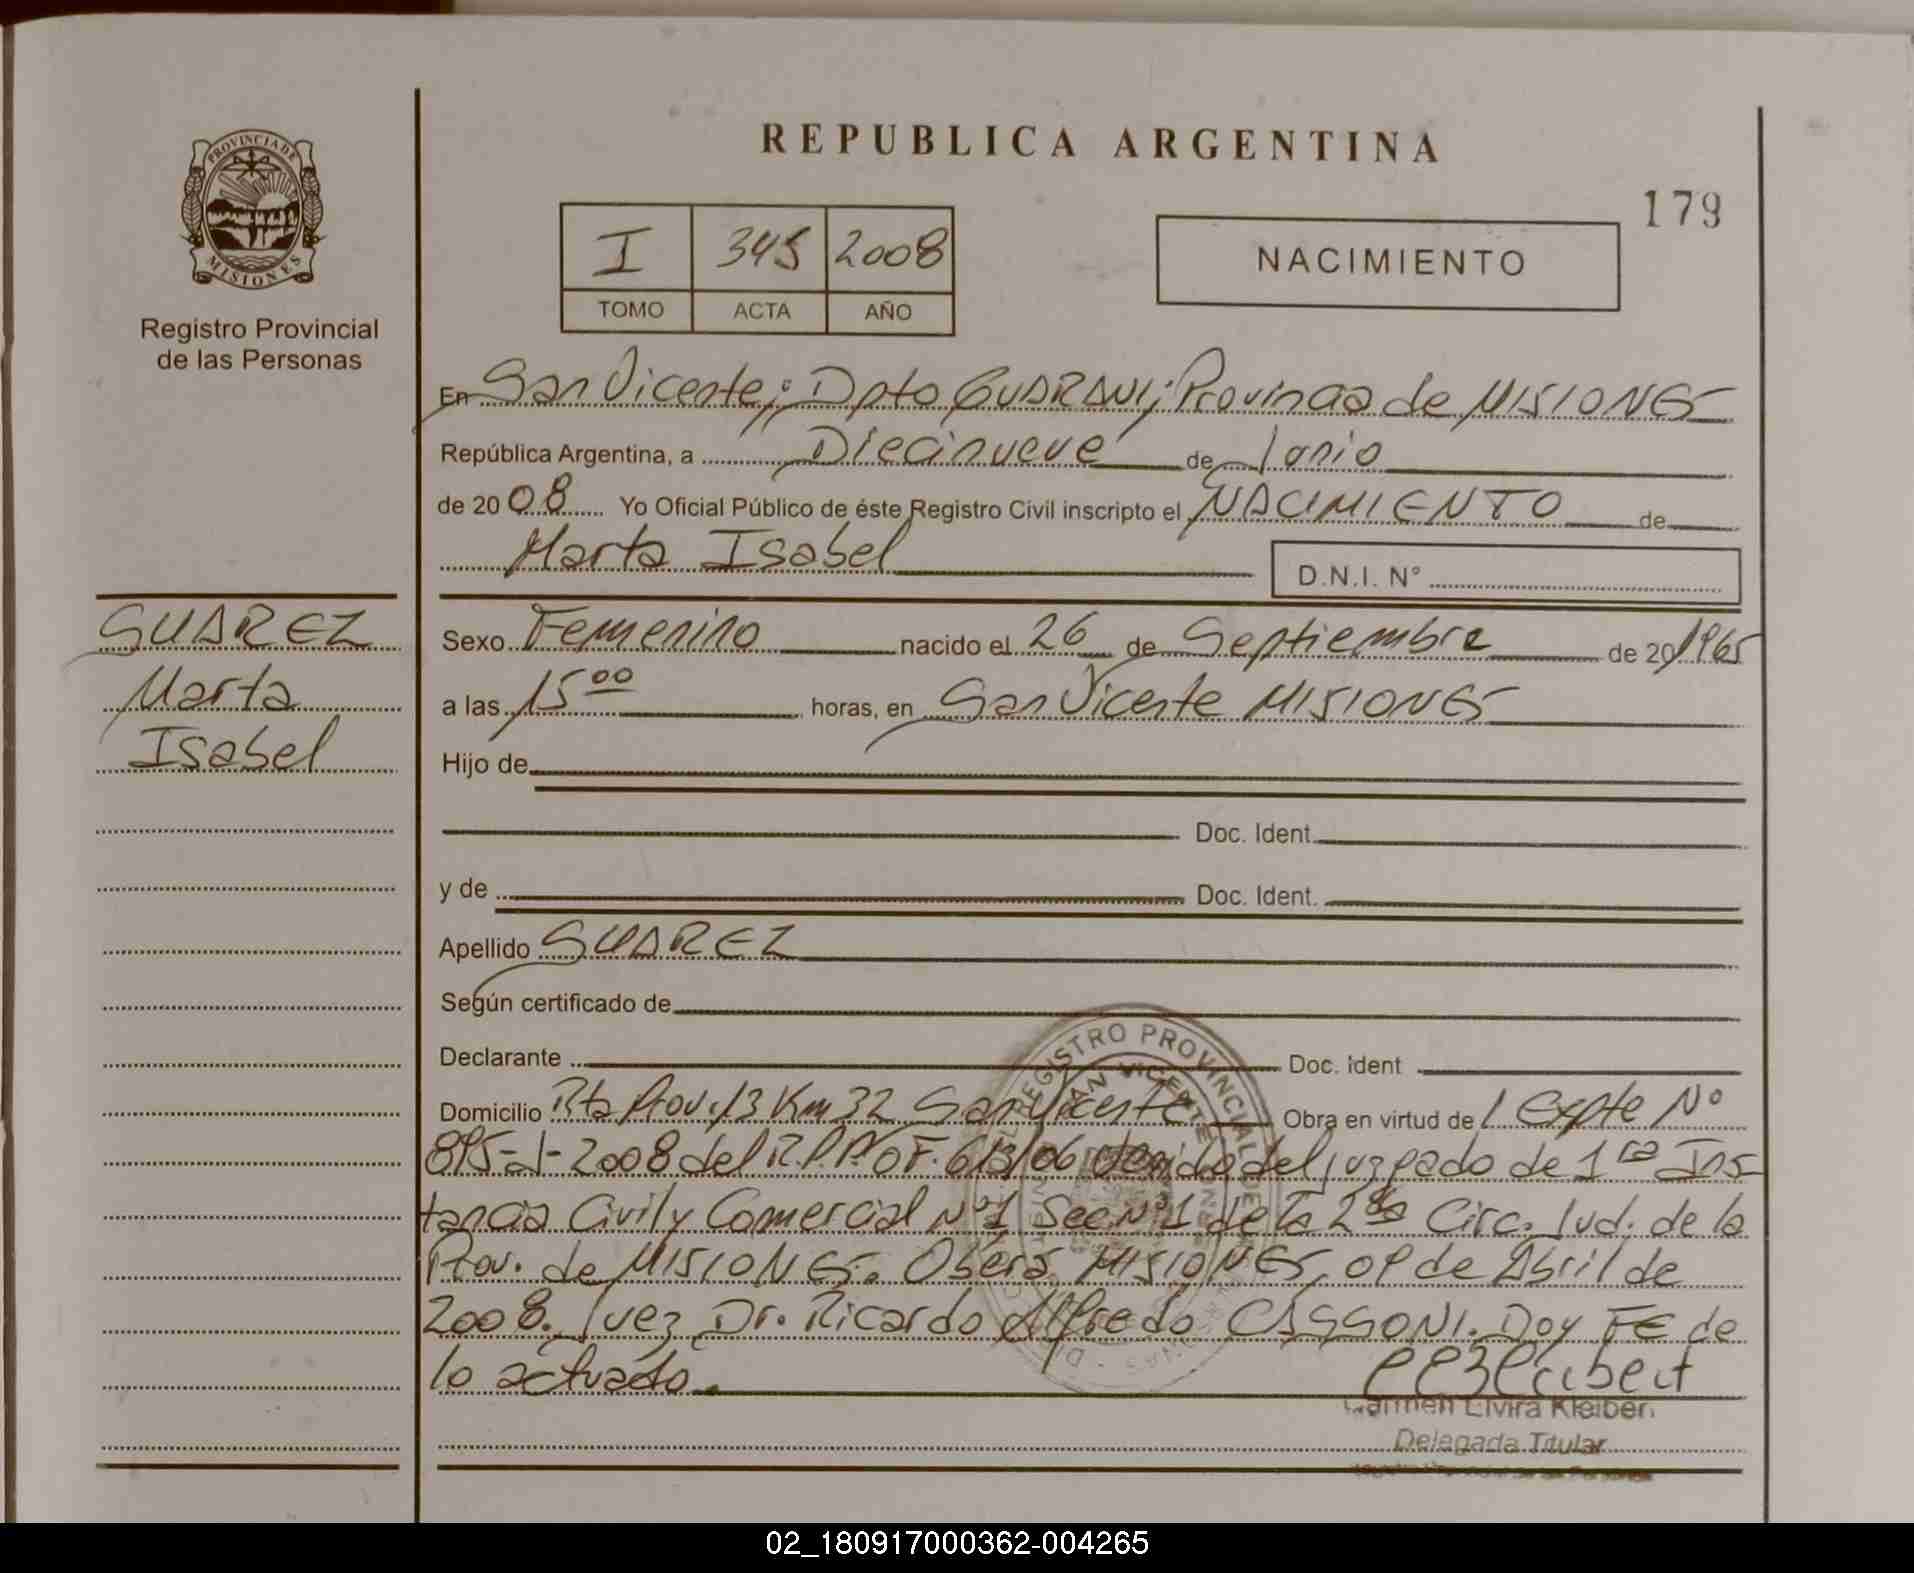 REPUBLICA ARGENTINA
179
PROVINCIA DE
MISIONES
Registro Provincial
de las Personas
I 345 2008
TOMO ACTA AÑO
NACIMIENTO
En San Vicente; Dpto GUARANI; Provincia de MISIONES
República Argentina, a Diecinueve de Junio
de 20 08 Yo Oficial Público de éste Registro Civil inscripto el NACIMIENTO de
Marta Isabel D.N.I. N°
SUAREZ
Marta
Isabel
Sexo Femenino nacido el 26 de Septiembre de 20/1965
a las 15 00 horas, en San Vicente MISIONES
Hijo de
Doc. Ident.
y de Doc. Ident.
Apellido SUAREZ
Según certificado de
Declarante Doc. ident
Domicilio Rta Prov. 13 Km 32 San Vicente Obra en virtud de / Expte N°
895-J-2008 del R.P.P. OF. 613/06 del juzgado de 1ra Ins
tancia Civil y Comercial N°1 Sec N°1 de la 2da Circ. Jud. de la
Prov. de MISIONES. Oberá MISIONES, 09 de Abril de
2008. Juez Dr. Ricardo Alfredo CASSONI. Doy FE de
lo actuado.
REGISTRO PROVINCIAL DE
SAN VICENTE
Carmen Elvira Kleibert
Delegada Titular
02_180917000362-004265